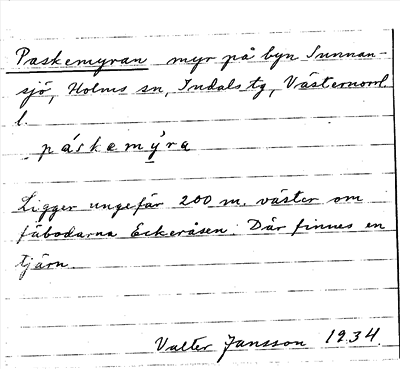 Paskemyran myr på byn Sunnan-
sjö, Holms sn, Indals tg, Västernorrl.
l.
páskemy̌ra
Ligger ungefär 200 m. väster om
fäbodarna Eckeråsen. Där finnes en
tjärn.
Valter Jansson 1934.